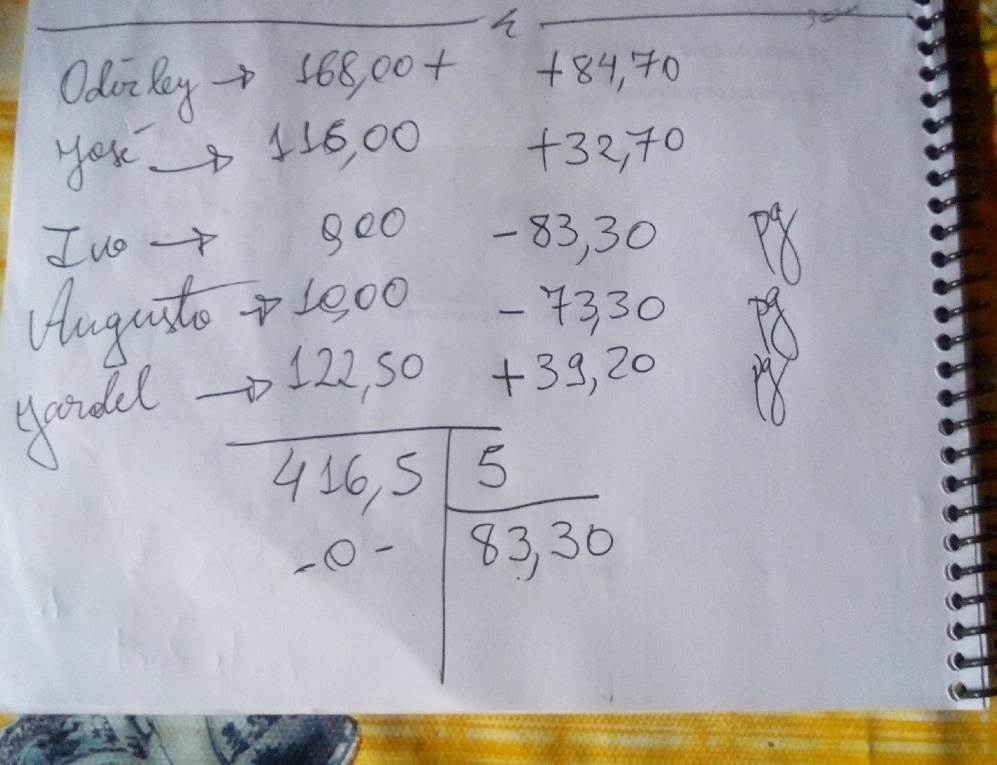 Odirley → 168,00+ +84,70
José → 116,00 +32,70
Ivo → 000 -83,30 pg
Augusto → 10,00 -73,30 pg
Yardel → 122,50 +39,20 pg
416,5 5
-0- 83,30